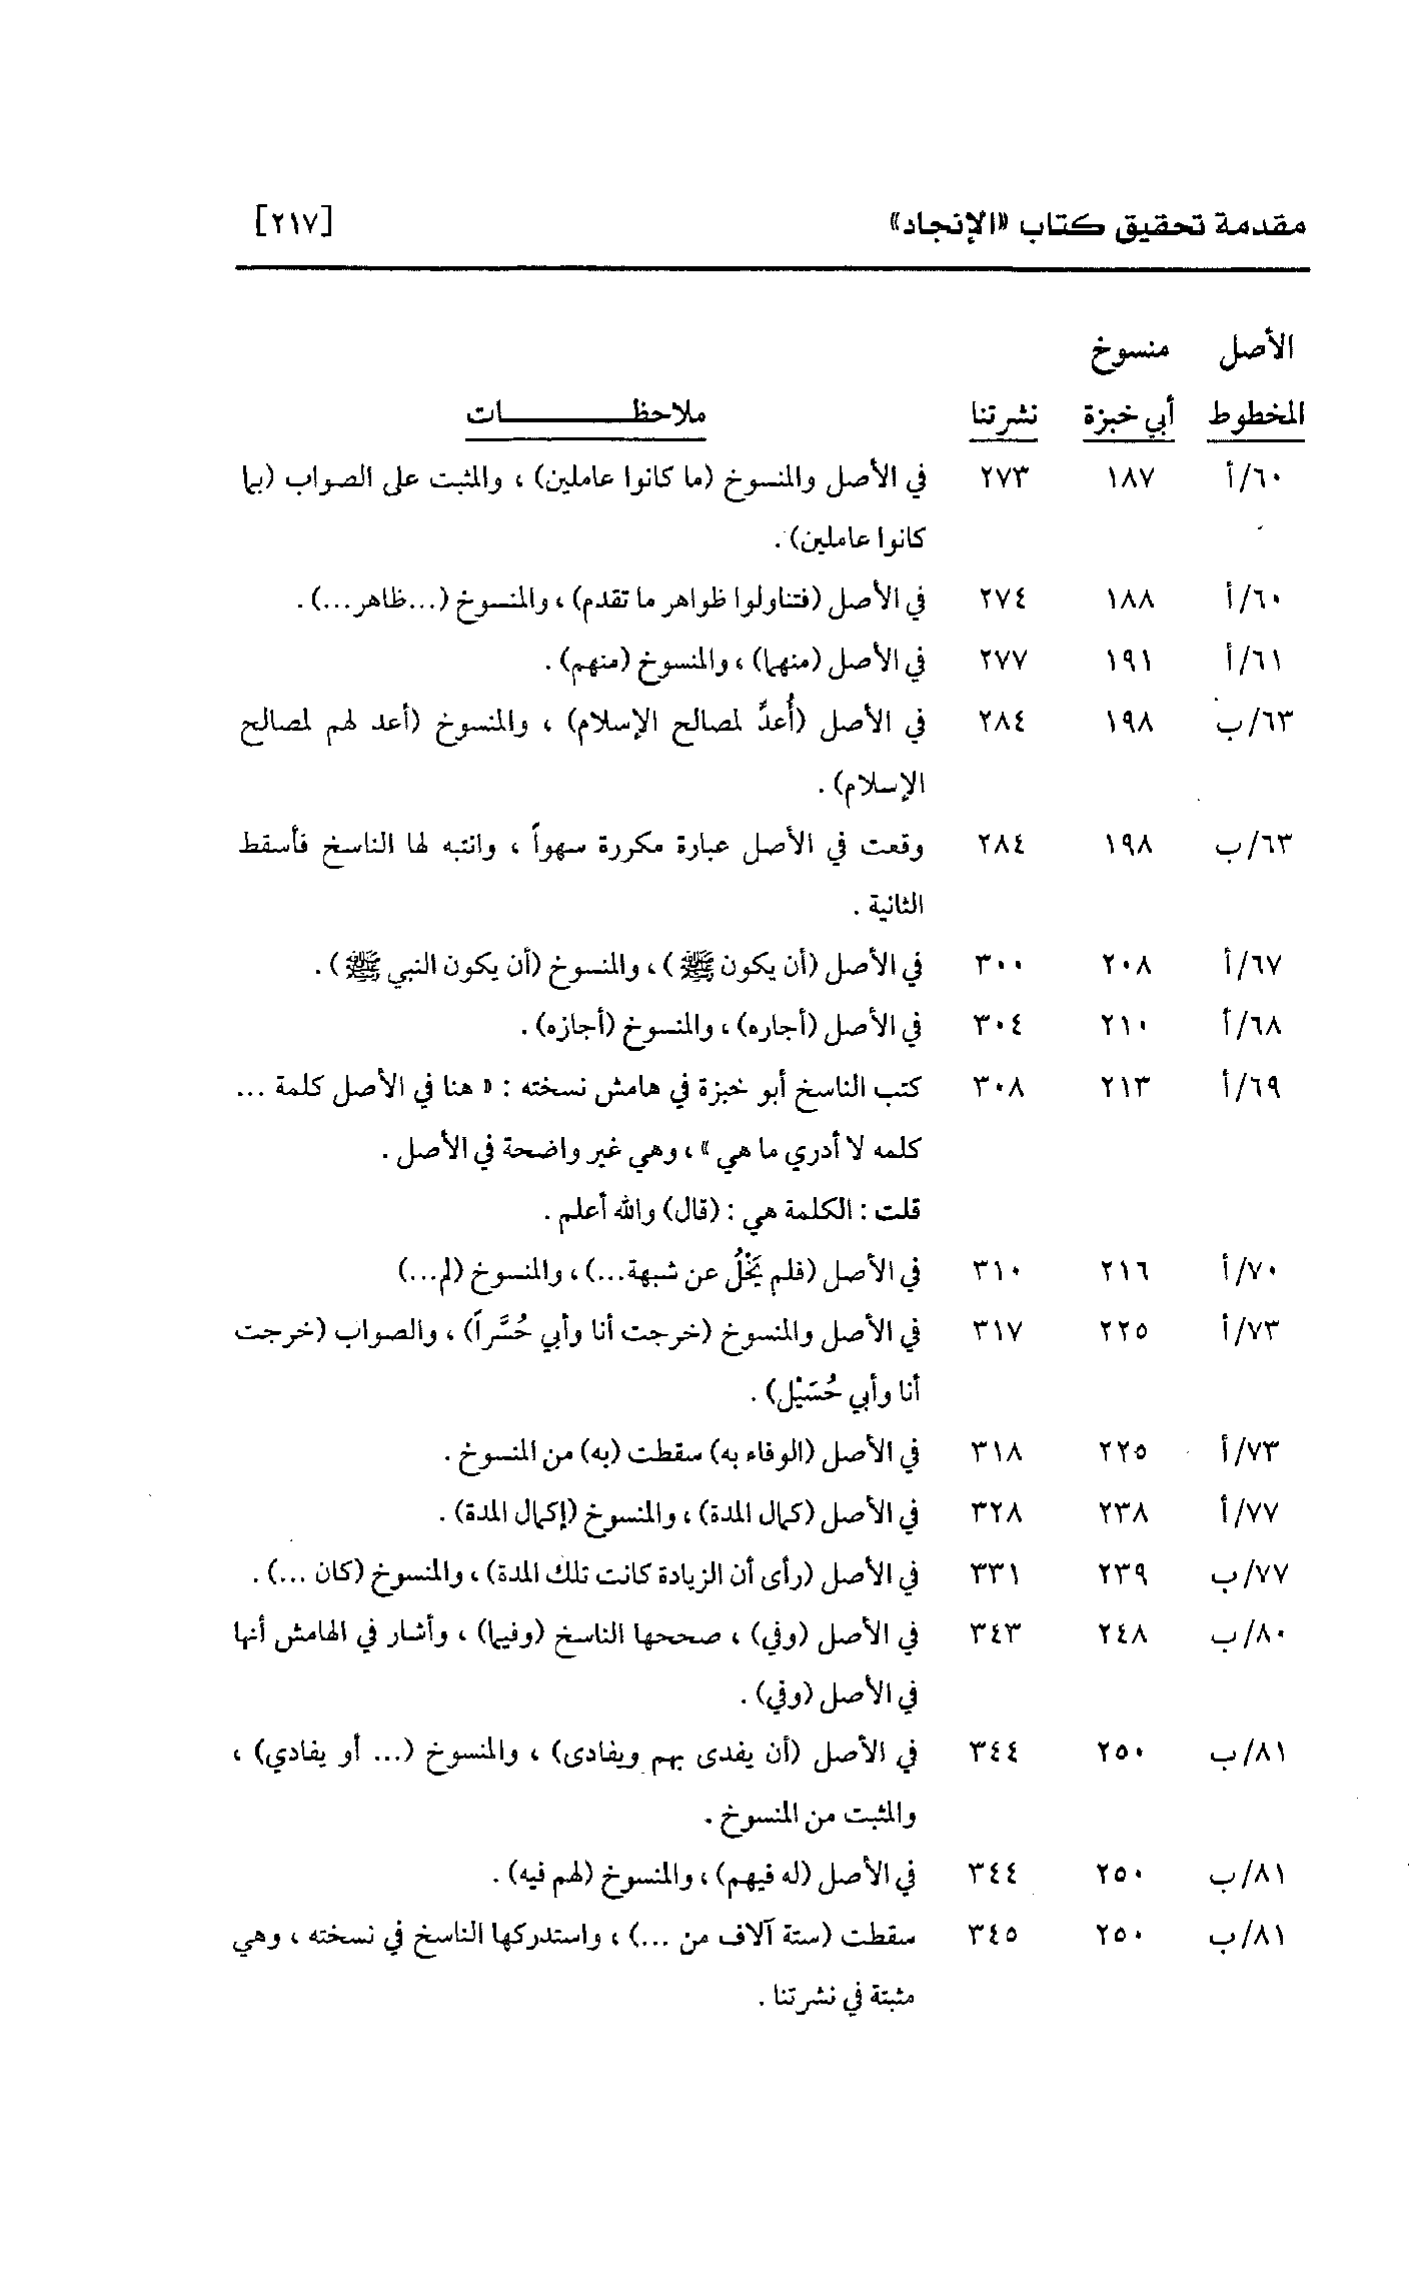 مقدمة تحقيق كتاب «الإنجاد» [٢١٧]
الأصل منسوخ
المخطوط أبي خبزة نشرتنا ملاحظــــــــــات
٦٠/أ ١٨٧ ٢٧٣ في الأصل والمنسوخ (ما كانوا عاملين) ، والمثبت على الصواب (بما
كانوا عاملين) .
٦٠/أ ١٨٨ ٢٧٤ في الأصل (فتناولوا ظواهر ما تقدم) ، والمنسوخ (...ظاهر...) .
٦١/أ ١٩١ ٢٧٧ في الأصل (منهما) ، والمنسوخ (منهم) .
٦٣/ب ١٩٨ ٢٨٤ في الأصل (أُعدَّ لمصالح الإسلام) ، والمنسوخ (أعد لهم لمصالح
الإسلام) .
٦٣/ب ١٩٨ ٢٨٤ وقعت في الأصل عبارة مكررة سهواً ، وانتبه لها الناسخ فأسقط
الثانية .
٦٧/أ ٢٠٨ ٣٠٠ في الأصل (أن يكون ﷺ) ، والمنسوخ (أن يكون النبي ﷺ) .
٦٨/أ ٢١٠ ٣٠٤ في الأصل (أجاره) ، والمنسوخ (أجازه) .
٦٩/أ ٢١٣ ٣٠٨ كتب الناسخ أبو خبزة في هامش نسخته : « هنا في الأصل كلمة ...
كلمه لا أدري ما هي » ، وهي غير واضحة في الأصل .
قلت : الكلمة هي : (قال) والله أعلم .
٧٠/أ ٢١٦ ٣١٠ في الأصل (فلم يَخْلُ عن شبهة...) ، والمنسوخ (لم...)
٧٣/أ ٢٢٥ ٣١٧ في الأصل والمنسوخ (خرجت أنا وأبي حُسَّراً) ، والصواب (خرجت
أنا وأبي حُسَيْل) .
٧٣/أ ٢٢٥ ٣١٨ في الأصل (الوفاء به) سقطت (به) من المنسوخ .
٧٧/أ ٢٣٨ ٣٢٨ في الأصل (كمال المدة) ، والمنسوخ (إكمال المدة) .
٧٧/ب ٢٣٩ ٣٣١ في الأصل (رأى أن الزيادة كانت تلك المدة) ، والمنسوخ (كان ...) .
٨٠/ب ٢٤٨ ٣٤٣ في الأصل (وفي) ، صححها الناسخ (وفيما) ، وأشار في الهامش أنها
في الأصل (وفي) .
٨١/ب ٢٥٠ ٣٤٤ في الأصل (أن يفدى بهم ويفادى) ، والمنسوخ (... أو يفادي) ،
والمثبت من المنسوخ .
٨١/ب ٢٥٠ ٣٤٤ في الأصل (له فيهم) ، والمنسوخ (لهم فيه) .
٨١/ب ٢٥٠ ٣٤٥ سقطت (ستة آلاف من ...) ، واستدركها الناسخ في نسخته ، وهي
مثبتة في نشرتنا .